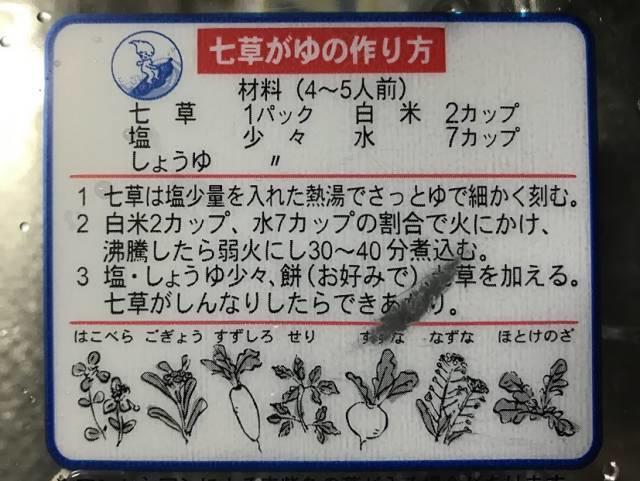 七草がゆの作り方
材料（4〜5人前）
七草 1パック 白米 2カップ
塩 少々 水 7カップ
しょうゆ 〃
1 七草は塩少量を入れた熱湯でさっとゆで細かく刻む。
2 白米2カップ、水7カップの割合で火にかけ、
沸騰したら弱火にし30〜40分煮込む。
3 塩・しょうゆ少々、餅（お好みで）、草を加える。
七草がしんなりしたらできあり。
はこべら ごぎょう すずしろ せり すずな なずな ほとけのざ